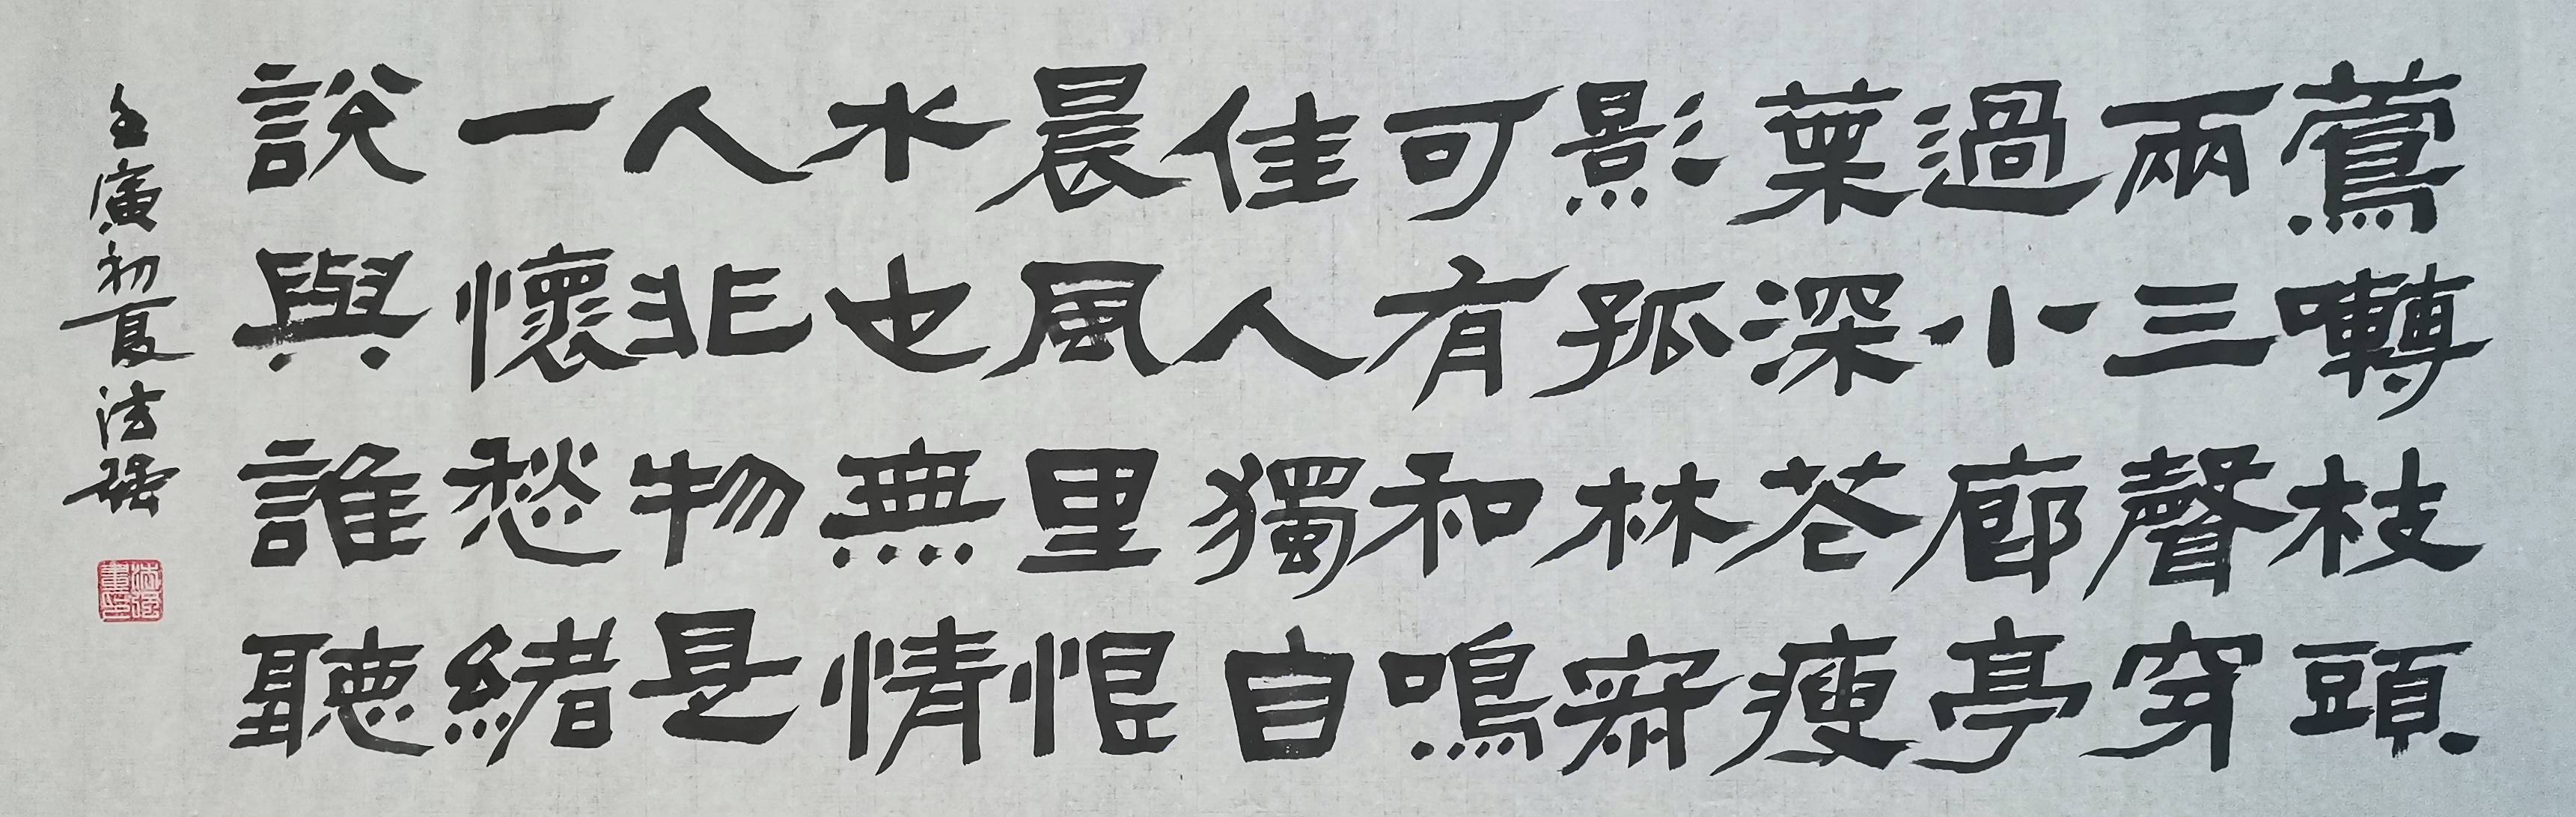 鶯囀枝頭
兩三聲穿
過小廊亭
葉深花瘦
影孤林寂
可有和鳴
佳人獨自
晨風里恨
水也無情
人非物是
一懷愁緒
說與誰聽
壬寅初夏法强
法强書印